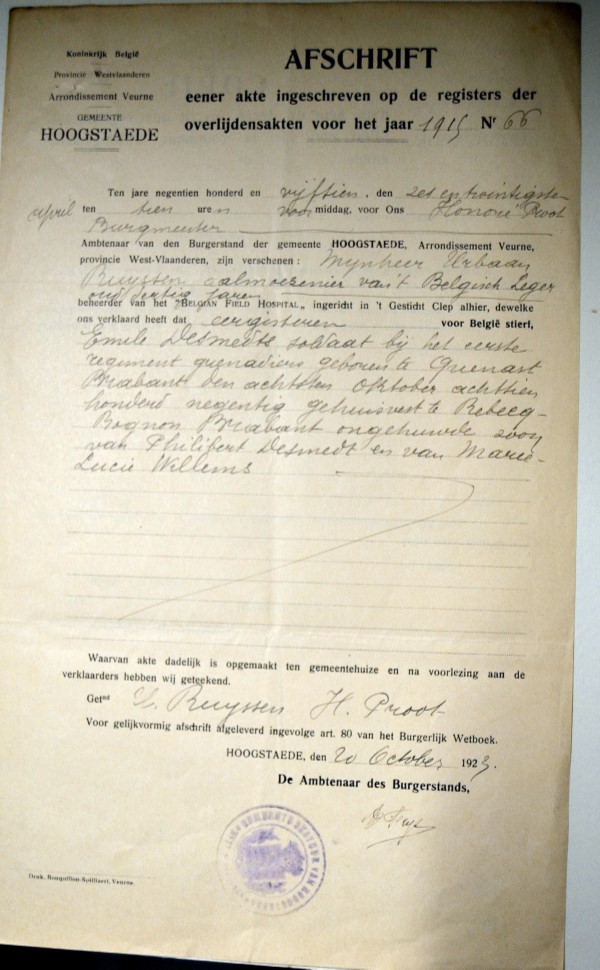 Koninkrijk België
Provincie Westvlaanderen
Arrondissement Veurne
GEMEENTE
HOOGSTAEDE
AFSCHRIFT
eener akte ingeschreven op de registers der
overlijdensakten voor het jaar 1915 Nr 66
Ten jare negentien honderd en vijftien, den zes en twintigsten
april ten tien uren voormiddag, voor Ons Honoré Proot
Burgmeester
Ambtenaar van den Burgerstand der gemeente HOOGSTAEDE, Arrondissement Veurne,
provincie West-Vlaanderen, zijn verschenen : Mynheer Urbaan
Ruyssen aalmoezenier van't Belgisch Leger
oud dertig jaren
beheerder van het "BELGIAN FIELD HOSPITAL" ingericht in 't Gesticht Clep alhier, dewelke
ons verklaard heeft dat eergisteren voor België stierf,
Emile Desmedt soldaat bij het eerste
regiment grenadiers geboren te Quenast
Brabant den achtsten Oktober achttien
honderd negentig gehuisvest te Rebecq-
Rognon Brabant ongehuwde zoon
van Philibert Desmedt en van Marie-
Lucie Willems
Waarvan akte dadelijk is opgemaakt ten gemeentehuize en na voorlezing aan de
verklaarders hebben wij geteekend.
Getnd Ruyssen H. Proot
Voor gelijkvormig afschrift afgeleverd ingevolge art. 80 van het Burgerlijk Wetboek.
HOOGSTAEDE, den 20 October 1923.
De Ambtenaar des Burgerstands,
GEMEENTE BESTUUR VAN
Druk. Bonquillon-Spilliaert, Veurne.